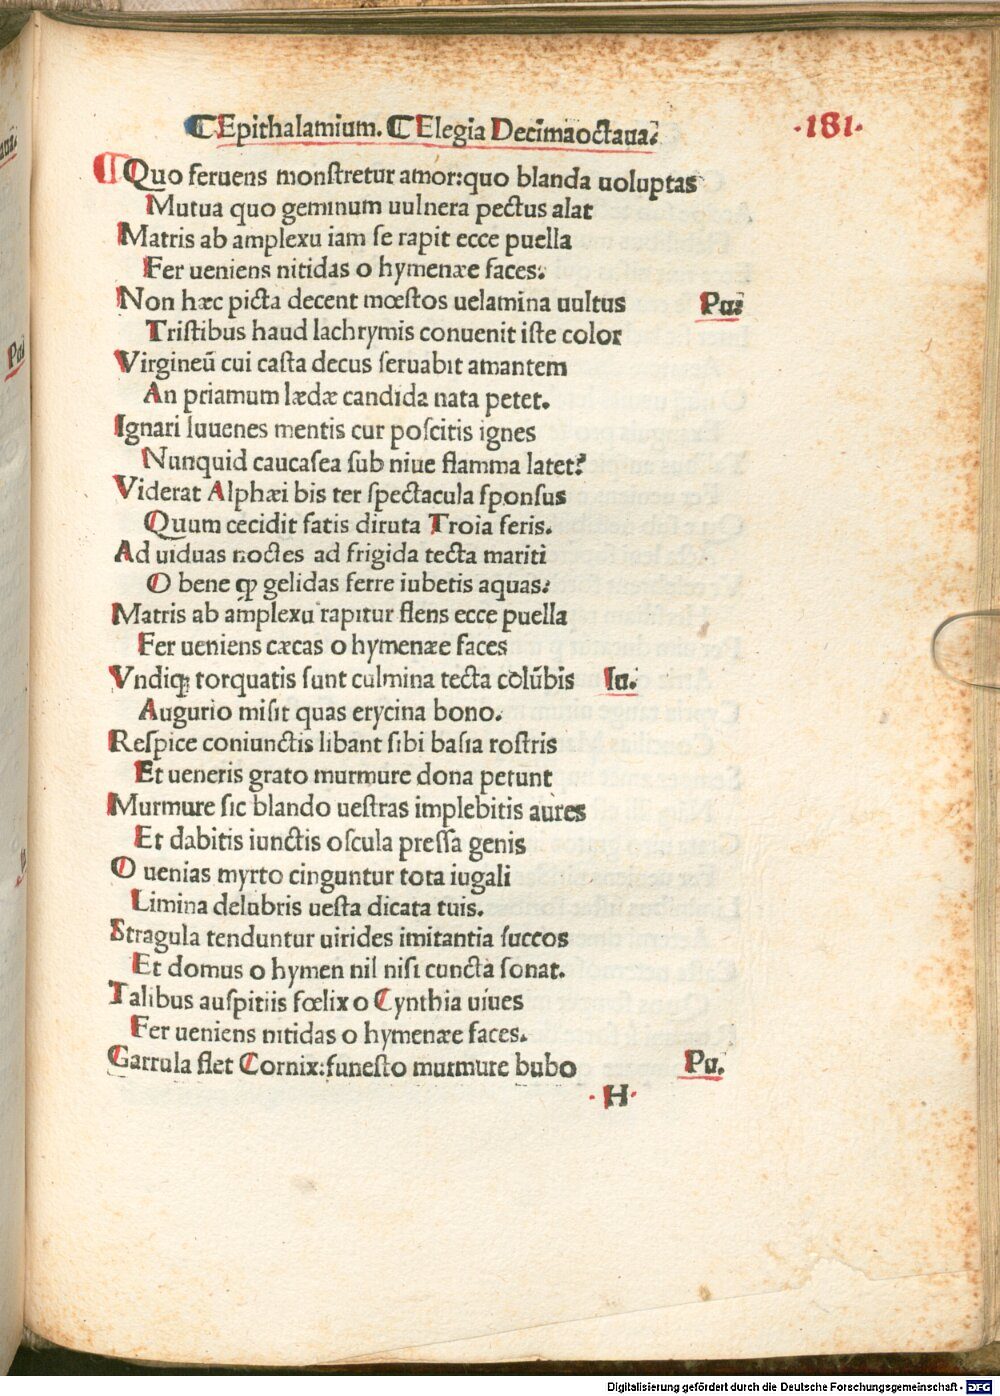 ⸿Epithalamium. ⸿Elegia Decimaoctaua. ·181·
Quo feruens monſtretur amor:quo blanda uoluptas
Mutua quo geminum uulnera pectus alat
Matris ab amplexu iam ſe rapit ecce puella
Fer ueniens nitidas o hymenæe faces.
Non hæc picta decent mœſtos uelamina uultus Pu.
Triſtibus haud lachrymis conuenit iſte color
Virgineū cui caſta decus ſeruabit amantem
An priamum lædæ candida nata petet.
Ignari Iuuenes mentis cur poſcitis ignes
Nunquid caucaſea ſub niue flamma latet?
Viderat Alphæi bis ter ſpectacula ſponſus
Quum cecidit fatis diruta Troia feris.
Ad uiduas noctes ad frigida tecta mariti
O bene ꝙ gelidas ferre iubetis aquas.
Matris ab amplexu rapitur flens ecce puella
Fer ueniens cæcas o hymenæe faces
Vndiꝗ torquatis ſunt culmina tecta colūbis Iu.
Augurio miſit quas erycina bono.
Reſpice coniunctis libant ſibi baſia roſtris
Et ueneris grato murmure dona petunt
Murmure ſic blando ueſtras implebitis aures
Et dabitis iunctis oſcula preſſa genis
O uenias myrto cinguntur tota iugali
Limina delubris ueſta dicata tuis.
Stragula tenduntur uirides imitantia ſuccos
Et domus o hymen nil niſi cuncta ſonat.
Talibus auſpitiis fœlix o Cynthia uiues
Fer ueniens nitidas o hymenæe faces.
Garrula flet Cornix:funeſto murmure bubo Pu.
·H·
Digitalisierung gefördert durch die Deutsche Forschungsgemeinschaft - DFG